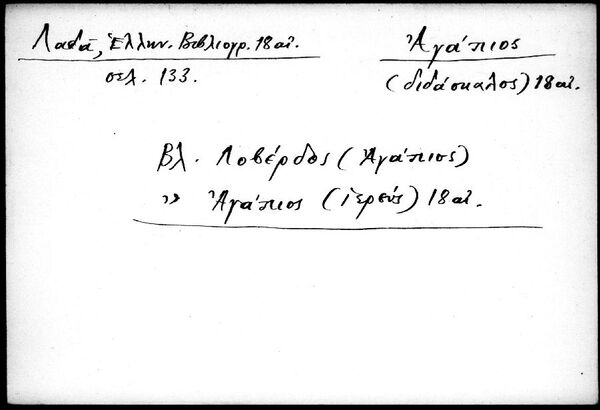 Λαδᾶ, Ἑλλην. Βιβλιογρ. 18 αἰ.
σελ. 133.
Ἀγάπιος
(διδάσκαλος) 18 αἰ.
Βλ. Λοβέρδος (Ἀγάπιος)
〃 Ἀγάπιος (Ἱερεύς) 18 αἰ.